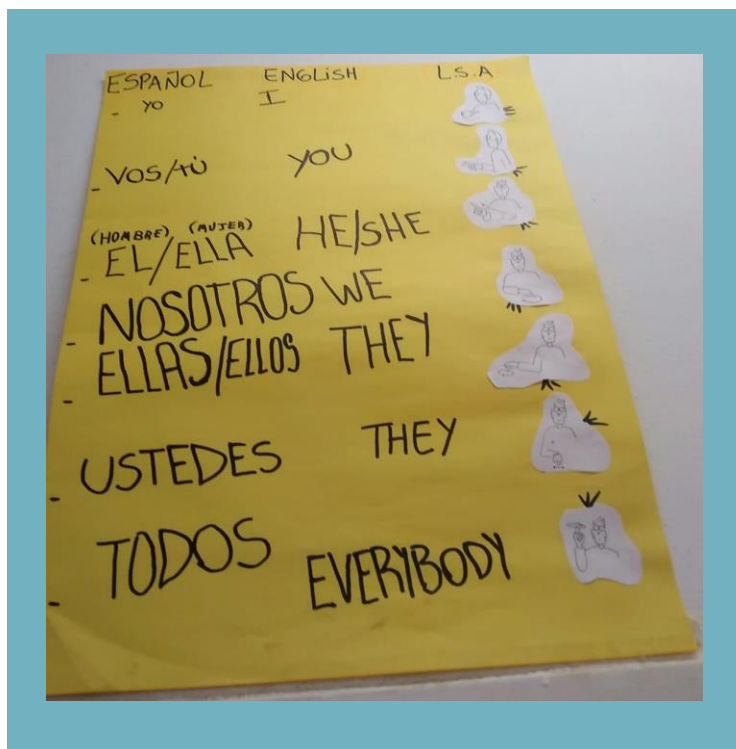 ESPAÑOL ENGLISH L.S.A
- YO I
- VOS/TÚ YOU
(HOMBRE) (MUJER)
- EL/ELLA HE/SHE
- NOSOTROS WE
- ELLAS/ELLOS THEY
- USTEDES THEY
- TODOS EVERYBODY